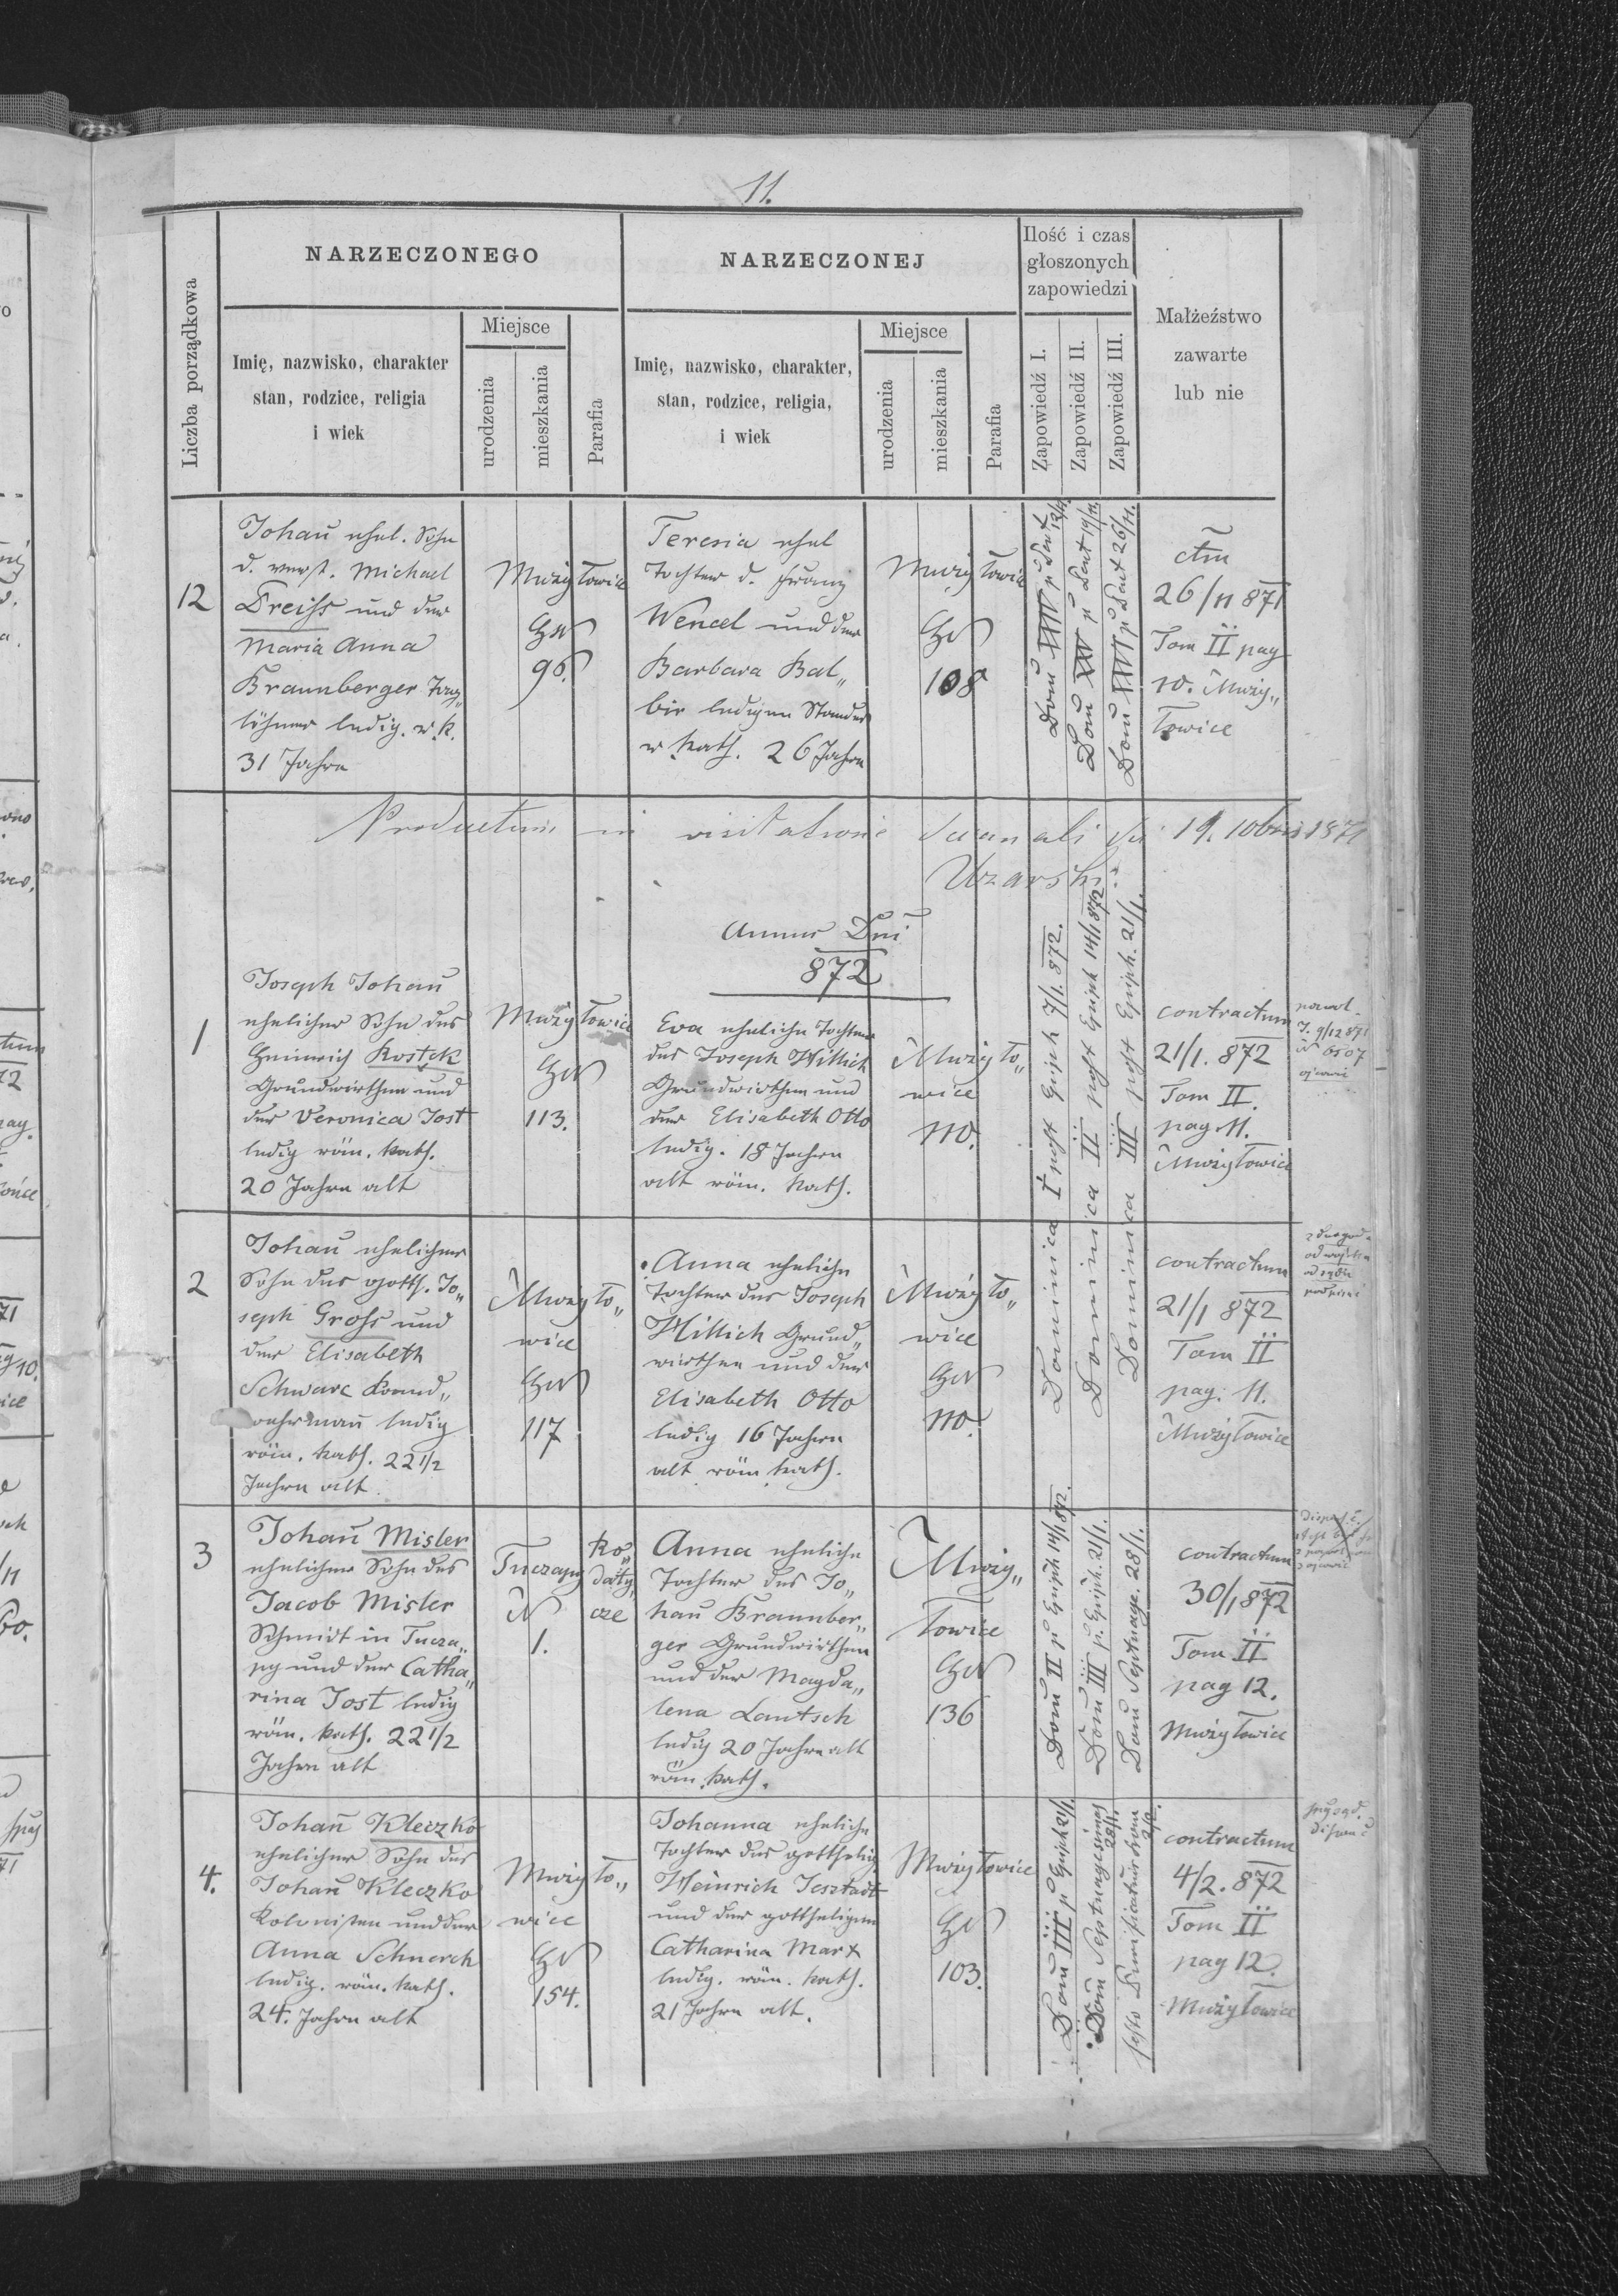 11.
NARZECZONEGO
NARZECZONEJ
Ilość i czas
głoszonych
zapowiedzi
Liczba porządkowa
Imię, nazwisko, charakter
stan, rodzice, religia
i wiek
Miejsce
urodzenia
mieszkania
Parafia
Imię, nazwisko, charakter,
stan, rodzice, religia,
i wiek
Miejsce
urodzenia
mieszkania
Parafia
Zapowiedź I.
Zapowiedź II.
Zapowiedź III.
Małżeźstwo
zawarte
lub nie
12
Johañ ehel. Sohn
d. verst. Michael
Dreiſs und der
Maria Anna
Braunberger Tag„
löhner ledig. r. k.
31 Jahre
Mużyłowice
96.
Teresia ehel
Tochter d. Franz
Wencel und der
Barbara Bal„
bir ledigen Standes
r. kath. 26 Jahre
Mużyłowice
108
Dom̃ XXIV p Pent 12/11.
Dom̃ XXV p Pent 19/11.
Dom̃ XXVI p Pent 26/11.
ctm̃
26/11 871
Tom II pag
10. Muży„
łowice
Productum in visitatione decanali die 19. 10bris 1871
Annus Dñi
872
1
Joseph Johañ
ehelicher Sohn des
Heinrich Kostek
Grundwirthen und
der Veronica Jost
ledig röm. kath.
20 Jahre alt
Mużyłowice
113.
Eva eheliche Tochter
des Joseph Hillich
Grundwirthen und
der Elisabeth Otto
ledig. 18 Jahren
alt röm. kath.
Mużyło„
wice
110.
Dominica I post Epiph 7/1. 872.
Dominica II post Epiph 14/1 872
Dominica III post Epiph. 21/1.
contractum
21/1. 872
Tom II.
pag 11.
Mużyłowice
2
Johañ ehelicher
Sohn des gotts. Jo„
seph Groſs und
der Elisabeth
Schwarc
ledig
röm. kath. 22 1/2
Jahre alt.
Mużyło„
wice
117
Anna eheliche
Tochter des Joseph
Hillich Grund„
wirthen und der
Elisabeth Otto
ledig 16 Jahren
alt röm kath.
Mużyło„
wice
110.
contractum
21/1 872
Tom II
pag: 11.
Mużyłowice
3
Johañ Misler
ehelicher Sohn des
Jacob Misler
Schmidt in Tucza„
py und der Catha„
rina Jost ledig
röm. kath. 22 1/2
Jahre alt
Tuczapy
N
1.
Anna eheliche
Tochter des Jo„
hañ Braunber„
ger Grundwirthen
und der Magda„
lena Lautsch
ledig 20 Jahre alt
röm. kath.
Muży„
łowice
136
Dom̃ II p Epiph 14/1 872.
Dom̃ III p. Epiph. 21/1.
Dom̃ Septuage. 28/1.
contractum
30/1 872
Tom II
pag 12.
Mużyłowice
4.
Johañ Kleczko
ehelicher Sohn des
Johañ Kleczko
Kolonisten und der
Anna Schnerch
ledig. röm. kath.
24. Jahre alt
Mużyło„
wice
154.
Johanna eheliche
Tochter des gottselig
Heinrich Jesztadt
und der gottseligen
Catharina Marx
ledig. röm. kath.
21 Jahre alt.
Mużyłowice
103.
Dom̃ III p Epiph 21/1.
Dom̃ Septuagesima 28/1.
festo Purificationis 2/2.
contractum
4/2. 872
Tom II
pag 12.
Mużyłowice